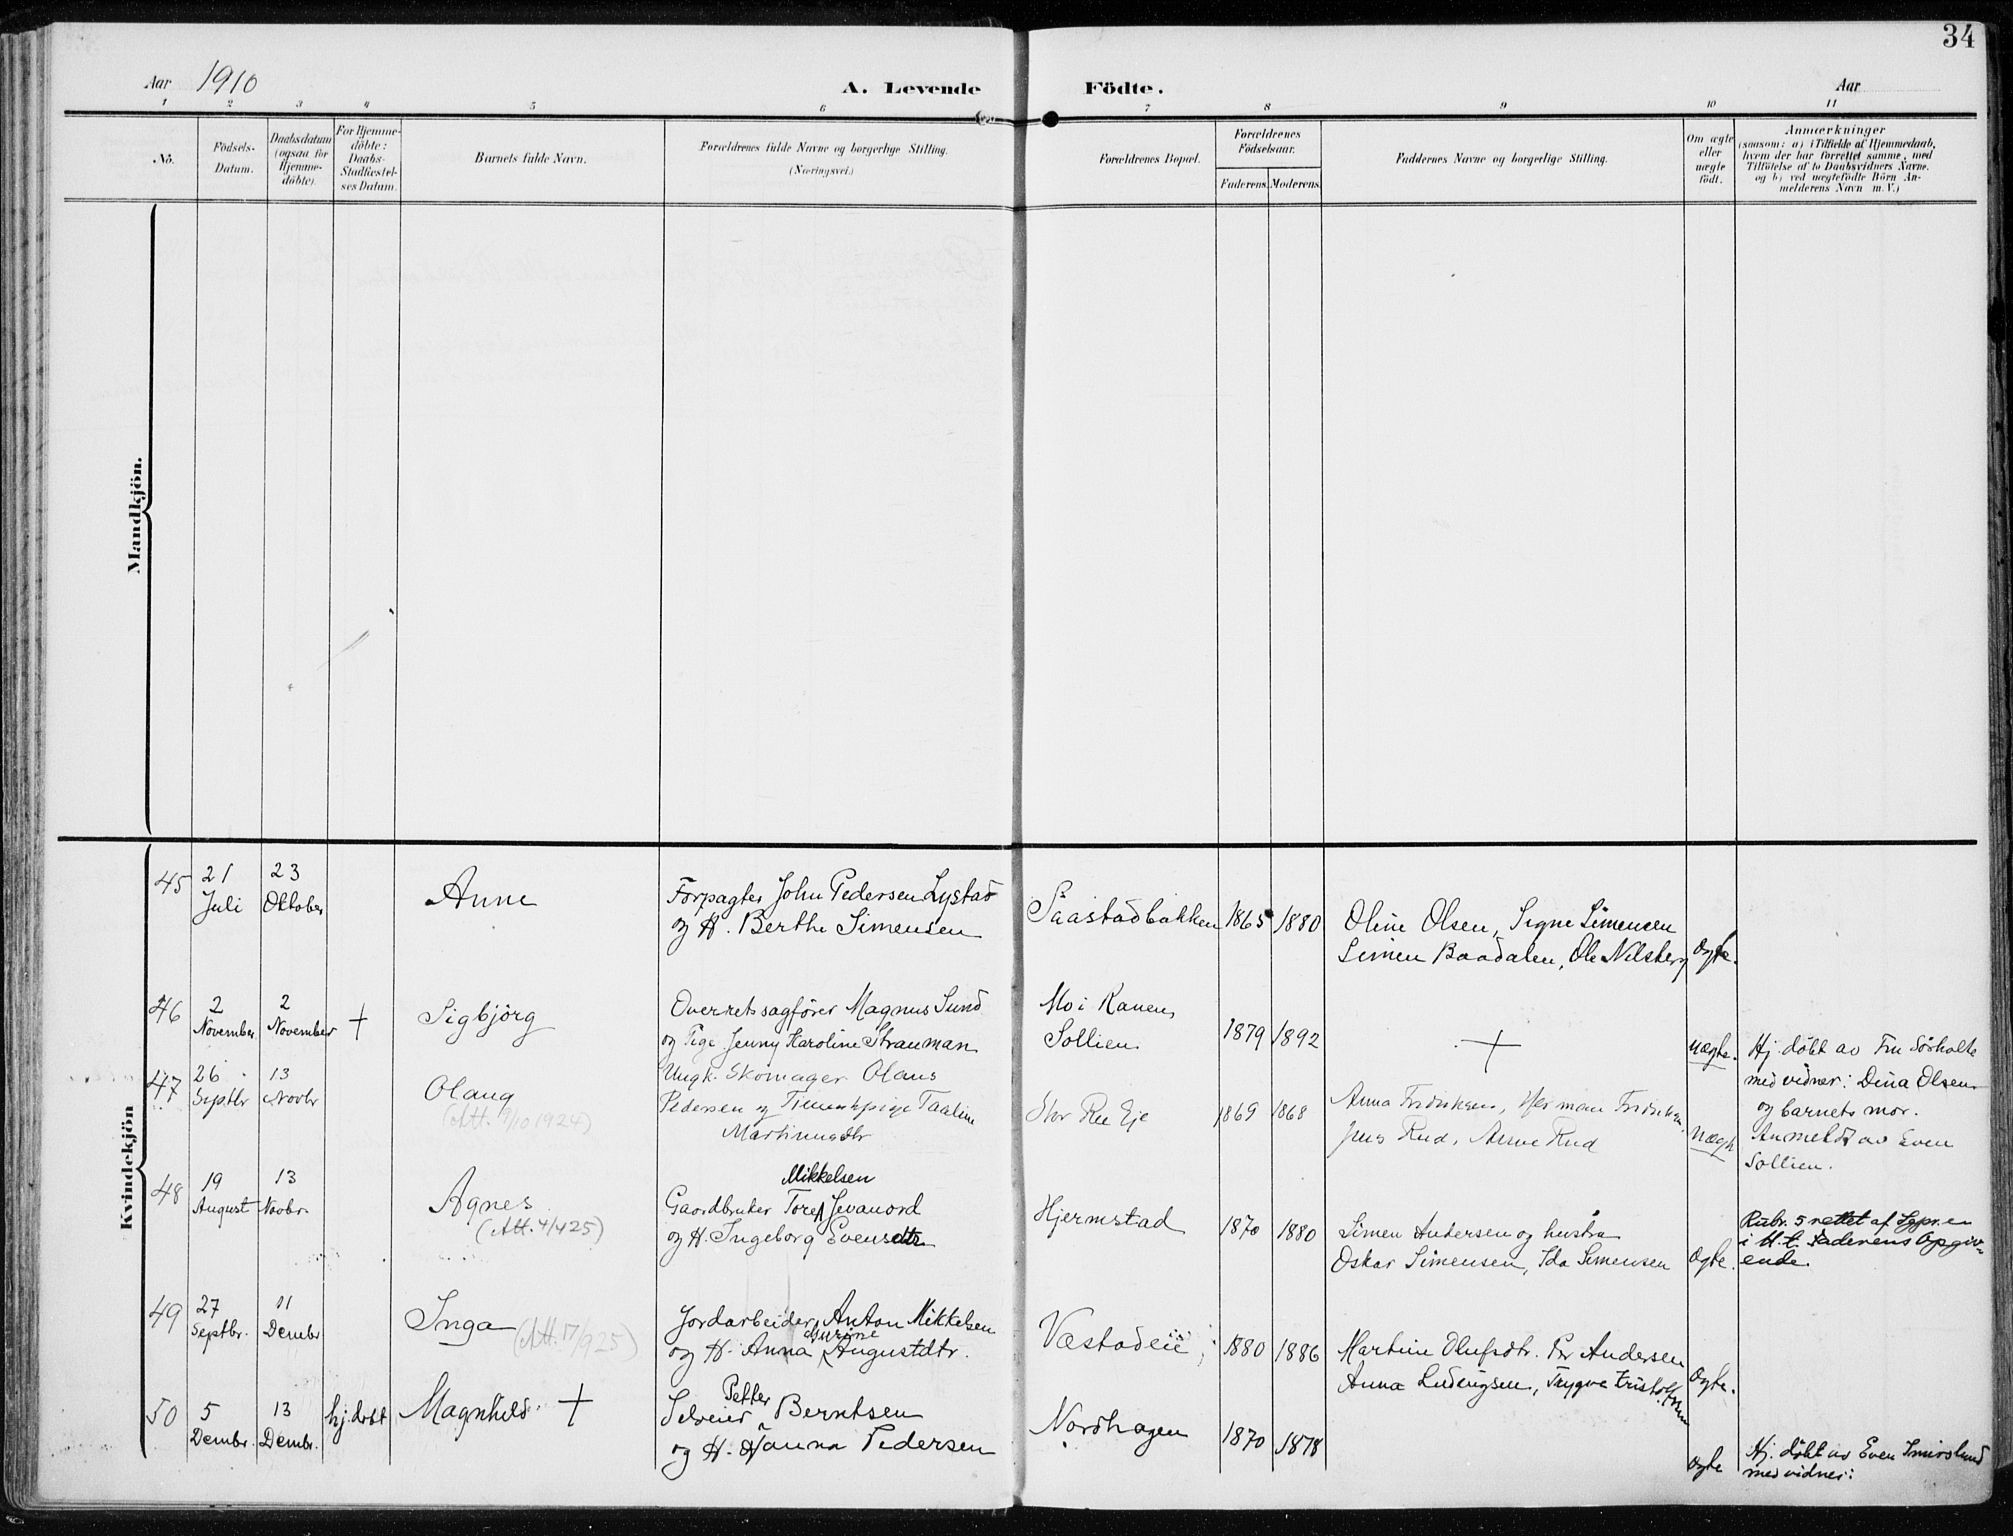 34
Aar 1910
A. Levende Födte.
Aar
1 2 3 4 5 6 7 8 9 10 11
No.
Födsels-
Datum.
Daabsdatum
(ogsaa for
Hjemme-
döbte).
For Hjemme-
döbte:
Daabs-
Stadfæstel-
ses Datum.
Barnets fulde Navn.
Forældrenes fulde Navne og borgerlige Stilling.
(Næringsvei.)
Forældrenes Bopæl.
Forældrenes
Födselsaar.
Faderens. Moderens.
Faddernes Navne og borgerlige Stilling.
Om ægte
eller
uægte
födt.
Anmærkninger
(saasom: a) i Tilfælde af Hjemmedaab,
hvem der har forrettet samme, med
Tilföielse af to Daabsvidners Navne.
og b) ved uægtefödte Börn An-
melderens Navn m. V.)
Mandkjön.
Kvindekjön
45
21
Juli
23
Oktober
Anne
Forpagter John Pedersen Lystad
og H. Berthe Simensen
Saastadbakken
1865 1880
Oline Olsen, Signe Simensen
Simen Baadalen, Ole Nilsberg
Ægte.
46
2
November
2
November
+
Sigbjörg
Overretssagförer Magnus Sund
og Pige Jenny Karoline Strauman
Mo i Ranen,
Sollien
1879 1892
+
Uægte.
Hj. döbt av Fru Sörholte
med vidner: Dina Olsen
og barnets mor.
Anmeldt av Even
Sollien.
47
26
Septbr
13
Novbr
Olaug
(Att. 9/10 1924)
Ungk. Skomager Olaus
Pedersen og Taaline
Martinusdtr
Stor Ree Eje
1869 1868
Anna Fredriksen, Herman Fredriksen
Jens Rud, Anne Rud
Uægte
48
19
August
13
Novbr.
Agnes
(Att. 4/425)
Mikkelsen
Gaardbruker Tore Jevanord
og H. Ingeborg Evensdtr
Hjermstad
1870 1880
Simen Andersen og hustru
Oskar Simensen, Ida Simensen
Ægte.
Rubr. 5 rettet af Sgpr. en
i H. t. Faderens Opgiv-
ende.
49
27
Septbr.
11
Dembr
Inga (Att. 17/925)
Jordarbeider Anton Mikkelsen
Gurine
og H. Anna Augustdtr.
Væstadeie
1880 1886
Martine Olufsdtr. Per Andersen
Anna Ludvigsen, Trygve Kristoffersen
Ægte.
50
5
Dembr.
13
Dembr.
hj. döbt
Magnhild +
Petter
Selveier Berntsen
og H. Hanna Pedersen
Nordhagen
1870 1878
Ægte
Hj. döbt av Even Smidslund
med vidner: